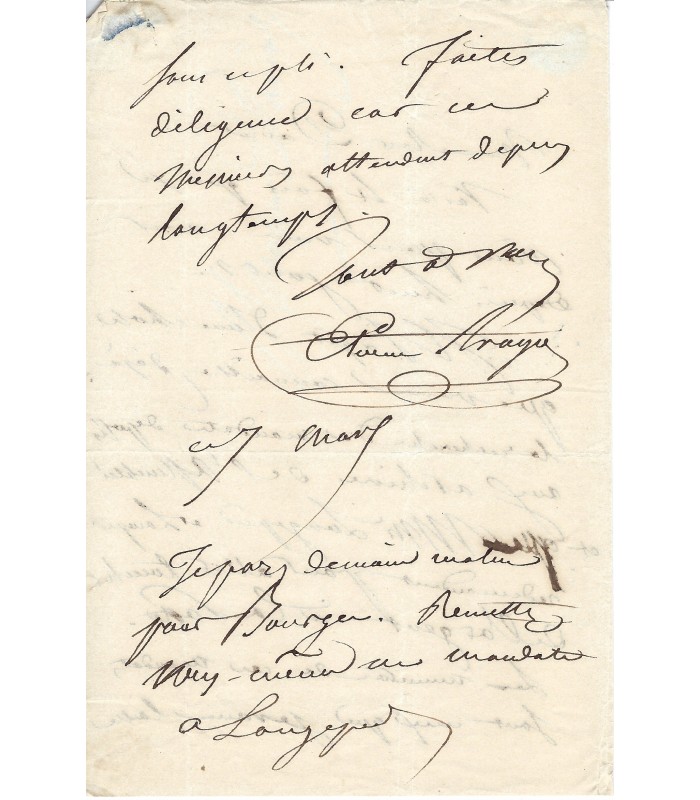 sous ce pli. Faites
diligence car ces
Messieurs attendent depuis
longtemps.
Tout à vous
Etienne Arago
ce 7 Mars
Je pars demain matin
pour Bourges. Remettez
vous-même ces mandats
à Longepied